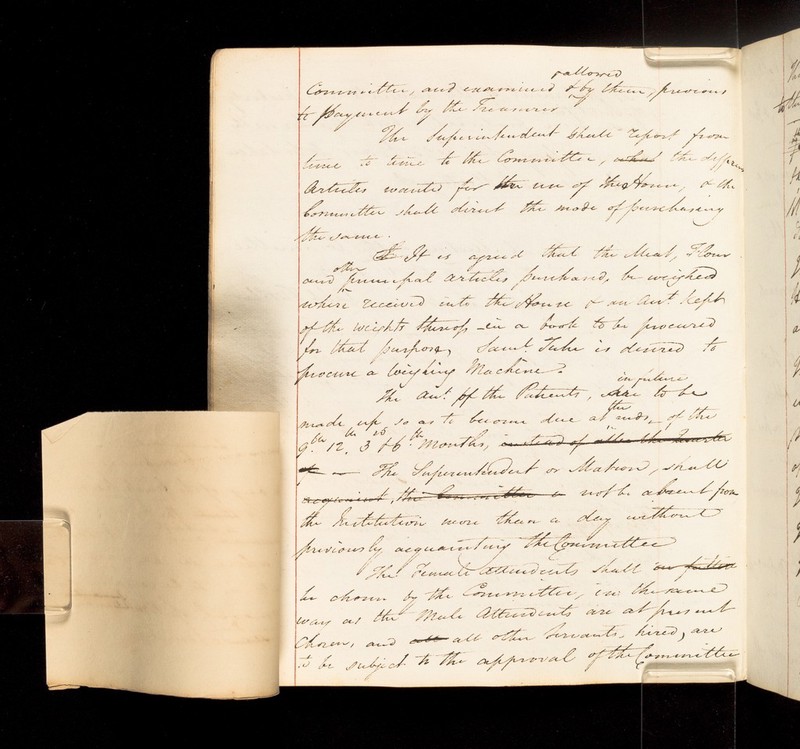 & allowed
Committee, and examined & by them, previous
to payment by the Treasurer
The Superintendent shall report from
time to time to the Committee, what the different
Articles wanted for the use of the House, & the
Committee shall direct the mode of purchasing
the same.
It is agreed that the Meat, Flour
other
and principal articles purchased, be weighed
when received into the House & an Acct. kept
of the weights thereof in a book to be procured
for that purpose, Saml. Tuke is desired to
procure a Weighing Machine.
in future
The Act. of the Patients, are to be
the
made up so as to become due at ends, of the
9th. 12th. 3rd & 6th. Months, instead of after the Quarter
The Superintendent or Matron, shall
acquaint, the Committee not be absent from
the Institution more than a day without
previously acquainting the Committee
The Female Attendants shall in future
be chosen by the Committee, in the same
way as the Male Attendants are at present
Chosen, and all all other Servants, hired, are
to be subject to the approval of the Committee